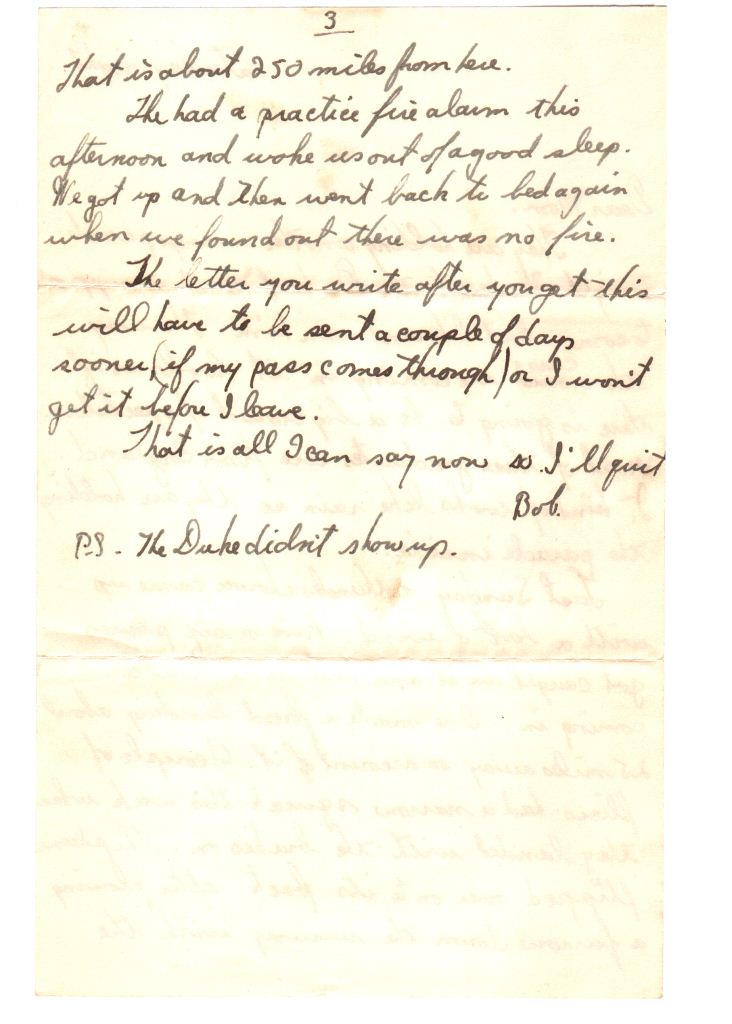 3
That is about 250 miles from here.
The had a practice fire alarm this
afternoon and woke us out of a good sleep.
We got up and then went back to bed again
when we found out there was no fire.
The letter you write after you get this
will have to be sent a couple of days
sooner (if my pass comes through) or I won't
get it before I leave.
That is all I can say now so I'll quit
Bob.
P.S. The Duke didn't show up.